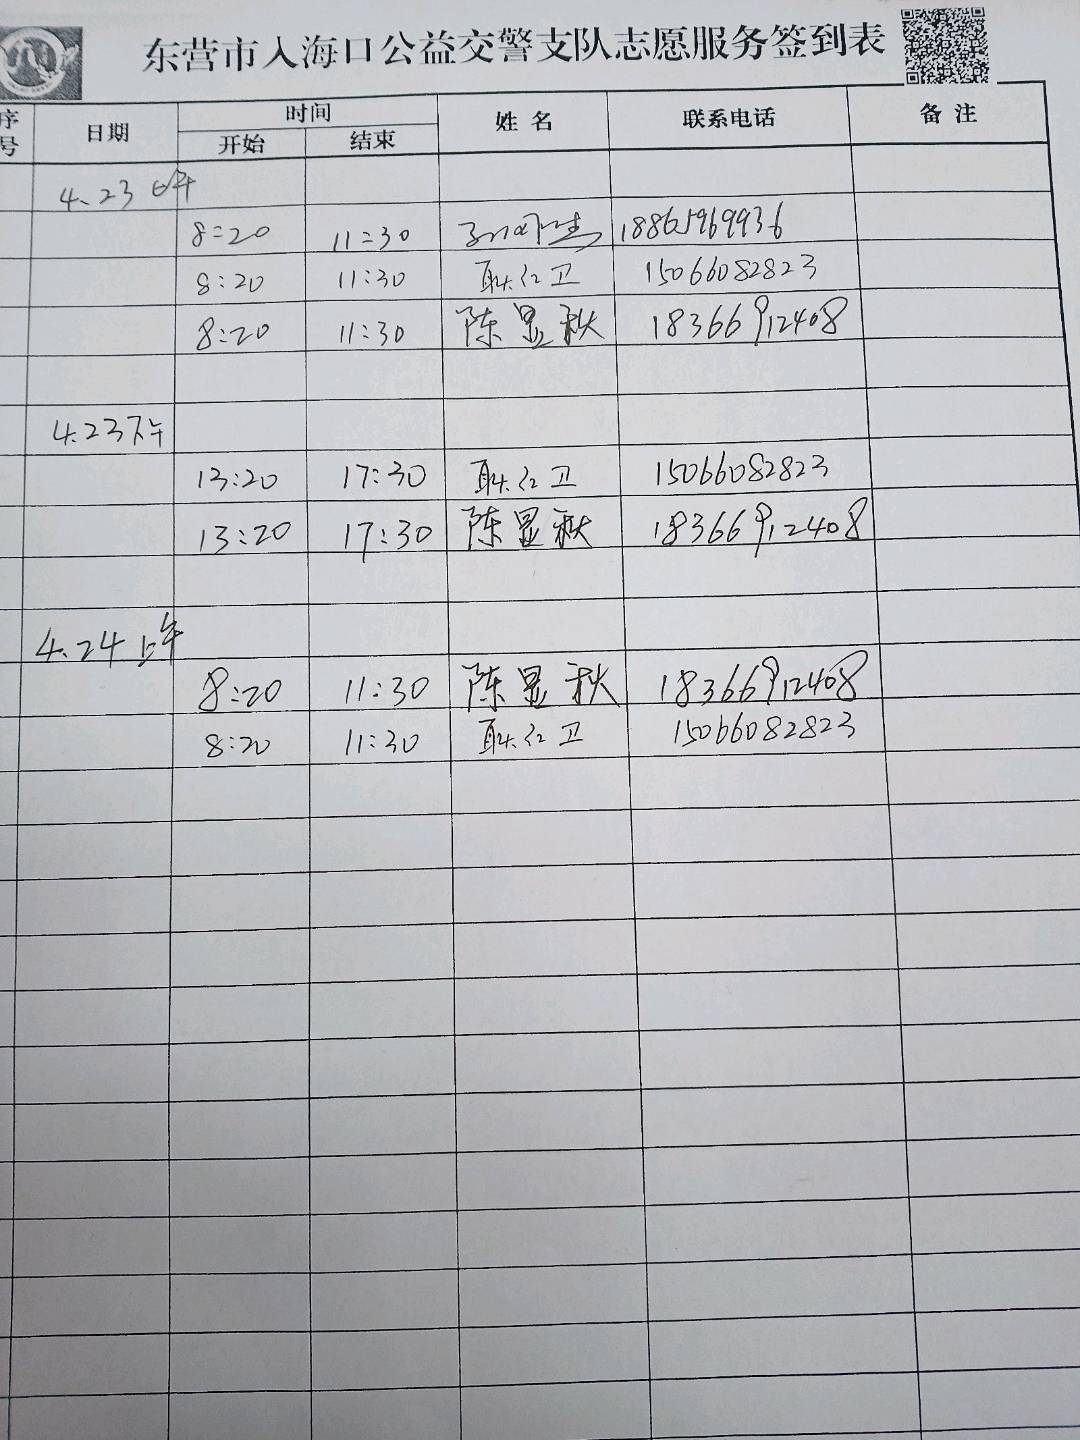 东营市入海口公益交警支队志愿服务签到表
序号 日期 时间 姓名 联系电话 备注
开始 结束
4.23 上午
8:20 11:30 18865969936
8:20 11:30 耿红卫 15066082823
8:20 11:30 陈显秋 18366912408
4.23下午
13:20 17:30 耿红卫 15066082823
13:20 17:30 陈显秋 18366912408
4.24上午
8:20 11:30 陈显秋 18366912408
8:20 11:30 耿红卫 15066082823